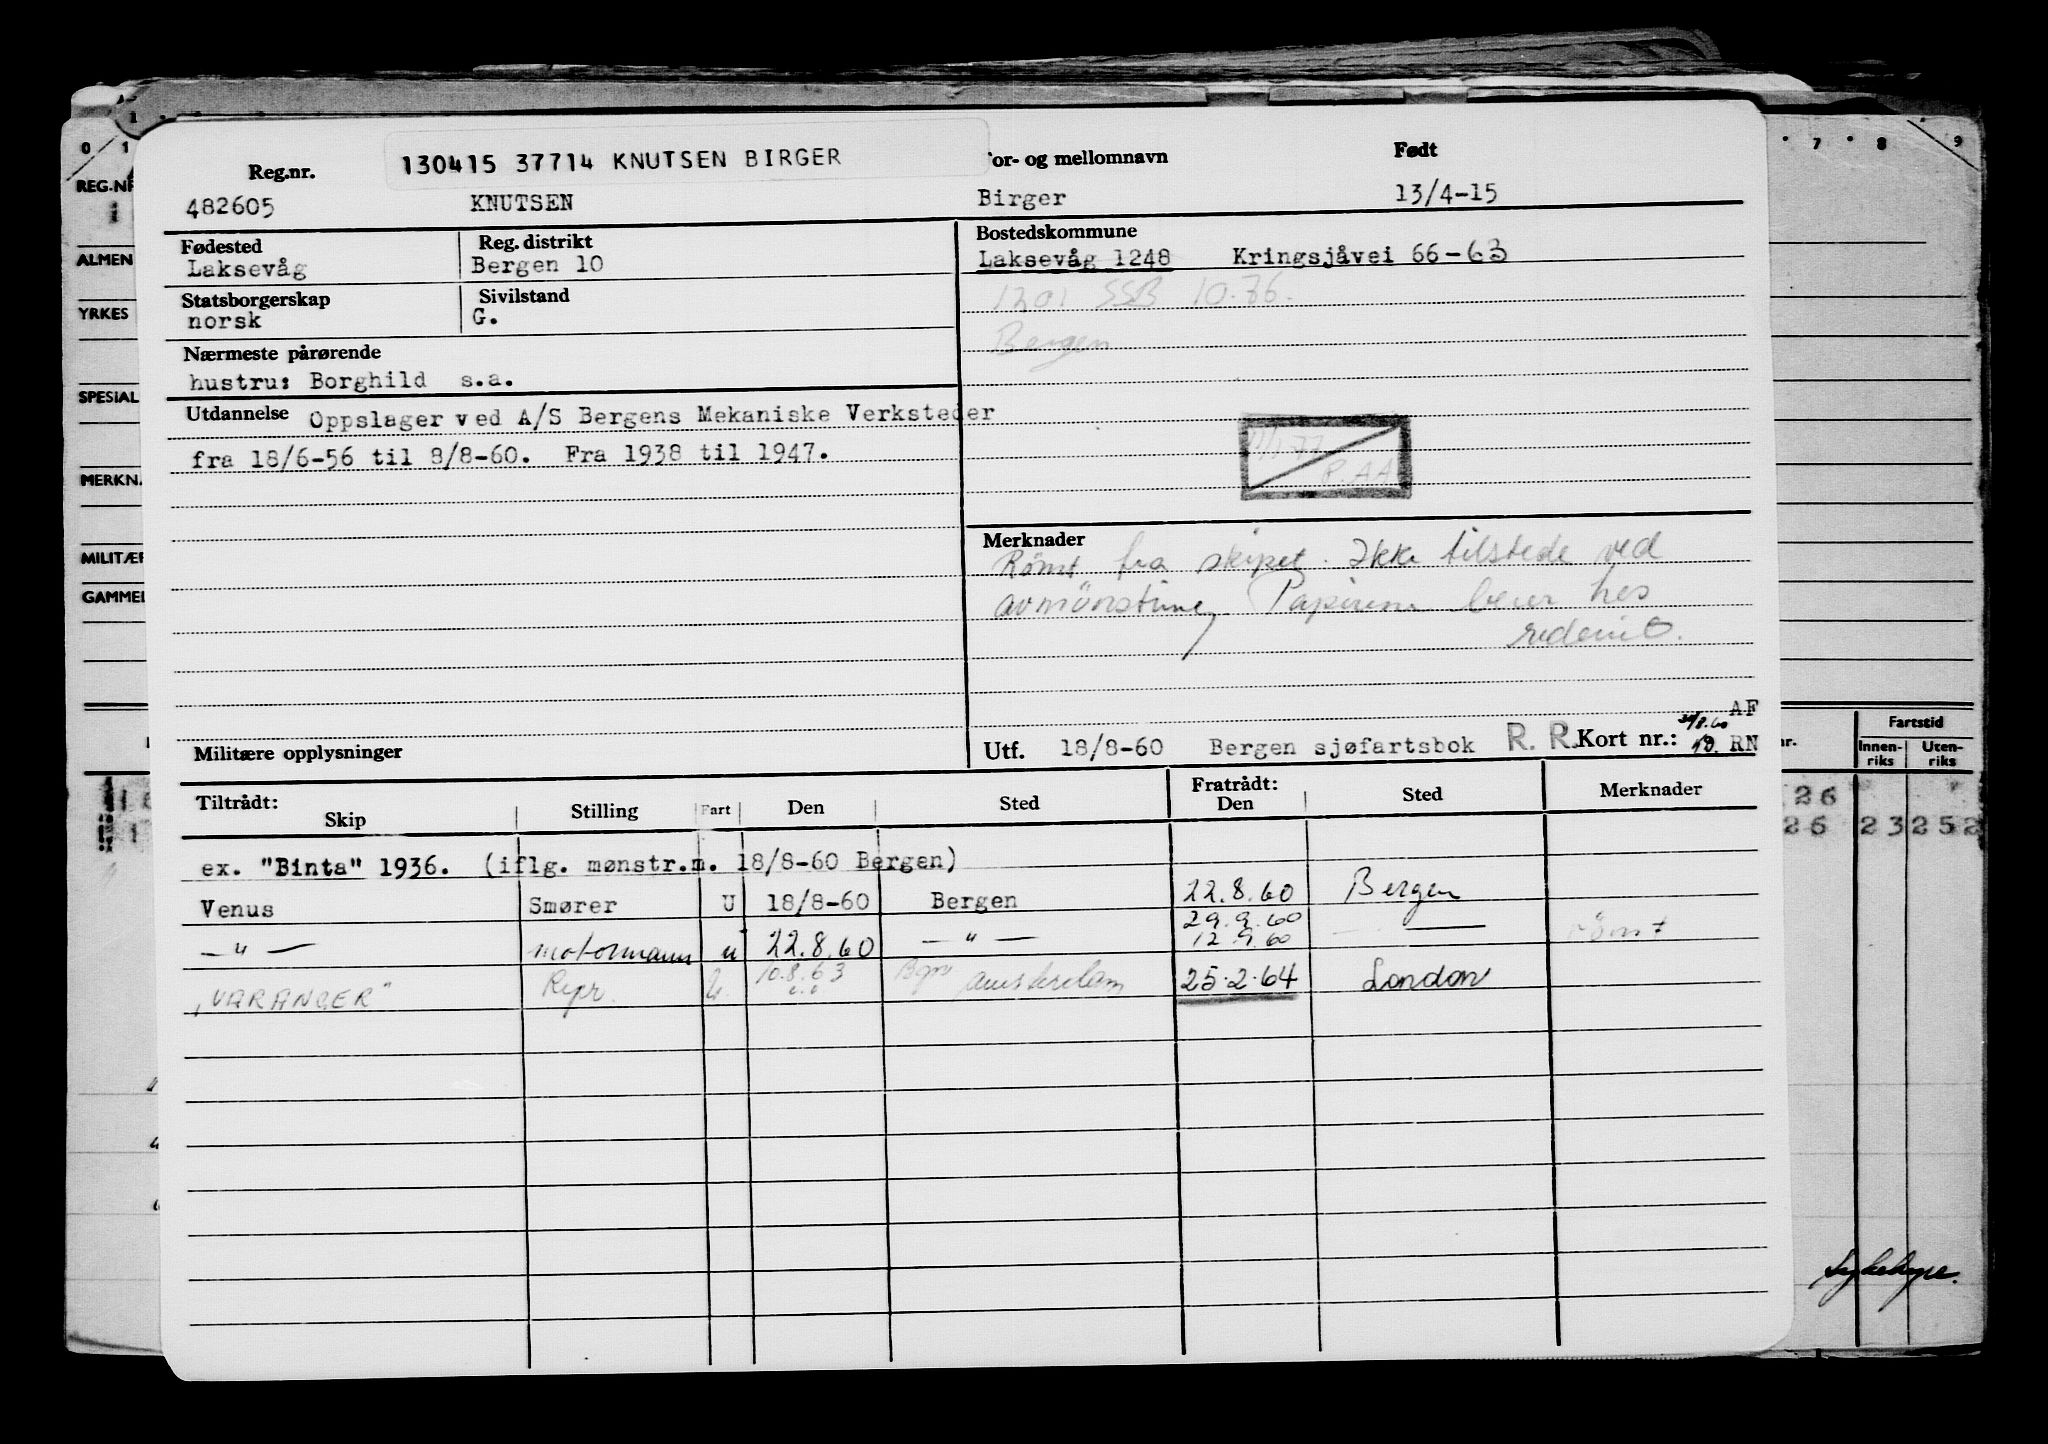 130415 37714 KNUTSEN BIRGER
Reg.nr. or- og mellomnavn Født
482605 KNUTSEN Birger 13/4-15
Fødested Reg. distrikt Bostedskommune
Laksevåg Bergen 10 Laksevåg 1248 Kringsjåvei 66-63
1201 SSB 10.76.
Statsborgerskap Sivilstand
norsk G.
Bergen
Nærmeste pårørende
hustru: Borghild s.a.
Utdannelse Oppslager ved A/S Bergens Mekaniske Verksteder
fra 18/6-56 til 8/8-60. Fra 1938 til 1947.
R.AA
Merknader
Rømt fra skipet. Ikke tilstede ved
avmönstring Papirene hos
rederiet.
AF
Militære opplysninger
Utf. 18/8-60 Bergen sjøfartsbok R. R. Kort nr.: RN
Tiltrådt: Fratrådt:
Skip Stilling Fart Den Sted Den Sted Merknader
ex. "Binta" 1936. (iflg. mønstr.m. 18/8-60 Bergen)
Venus Smører U 18/8-60 Bergen 22.8.60 Bergen
29.9.60
— " — motormann u 22.8.60 — " — 12.9.60 — rømt
"VARANGER" Repr. U. 10.8.63 Bgn Amsterdam 25.2.64 London
0 1
REG.NR
ALMEN
YRKES
SPESIAL
MERKN.
MILITÆR
GAMMEL
7 8 9
nr. Fartstid
Innen-riks Uten-riks
26
26 23 252